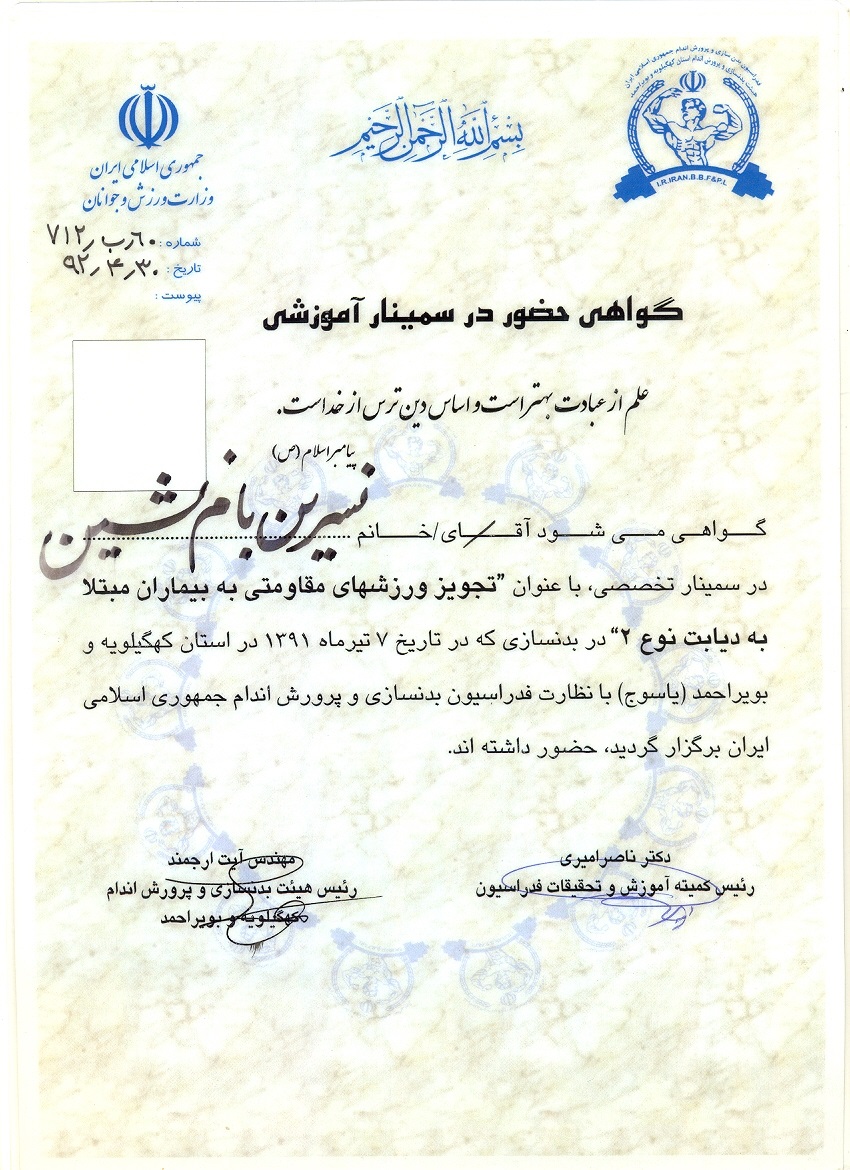 فدراسیون بدن سازی و پرورش اندام جمهوری اسلامی ایران
هیئت بدنسازی و پرورش اندام استان کهگیلویه و بویراحمد
I.R.IRAN.B.B.F&P.L
بسم الله الرحمن الرحیم
جمهوری اسلامی ایران
وزارت ورزش و جوانان
شماره : ۶۰رب/۷۱۲
تاریخ : ۹۲/۴/۳۰
پیوست :
گواهی حضور در سمینار آموزشی
علم از عبادت بهتر است و اساس دین ترس از خداست.
پیامبر اسلام (ص)
گواهی می شود آقای/خانم نسرین بام نشین
در سمینار تخصصی، با عنوان "تجویز ورزشهای مقاومتی به بیماران مبتلا
به دیابت نوع ۲" در بدنسازی که در تاریخ ۷ تیرماه ۱۳۹۱ در استان کهگیلویه و
بویراحمد (یاسوج) با نظارت فدراسیون بدنسازی و پرورش اندام جمهوری اسلامی
ایران برگزار گردید، حضور داشته اند.
دکتر ناصر امیری
رئیس کمیته آموزش و تحقیقات فدراسیون
مهندس آیت ارجمند
رئیس هیئت بدنسازی و پرورش اندام
کهگیلویه و بویراحمد